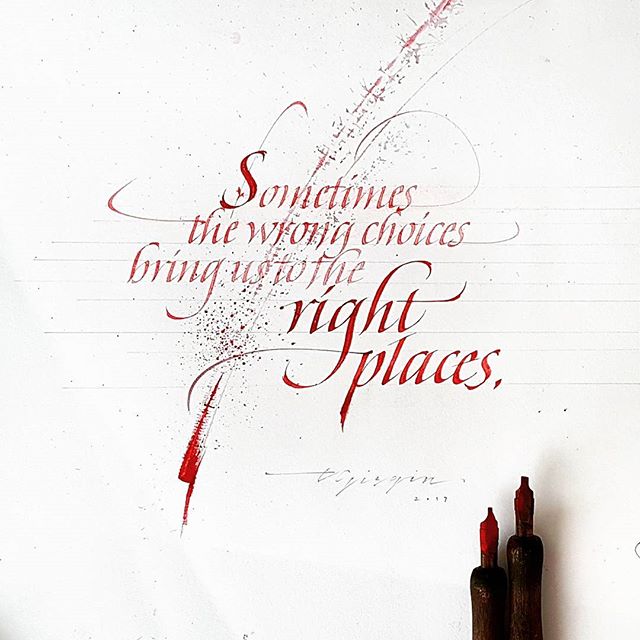 Sometimes
the wrong choices
bring us to the
right
places.